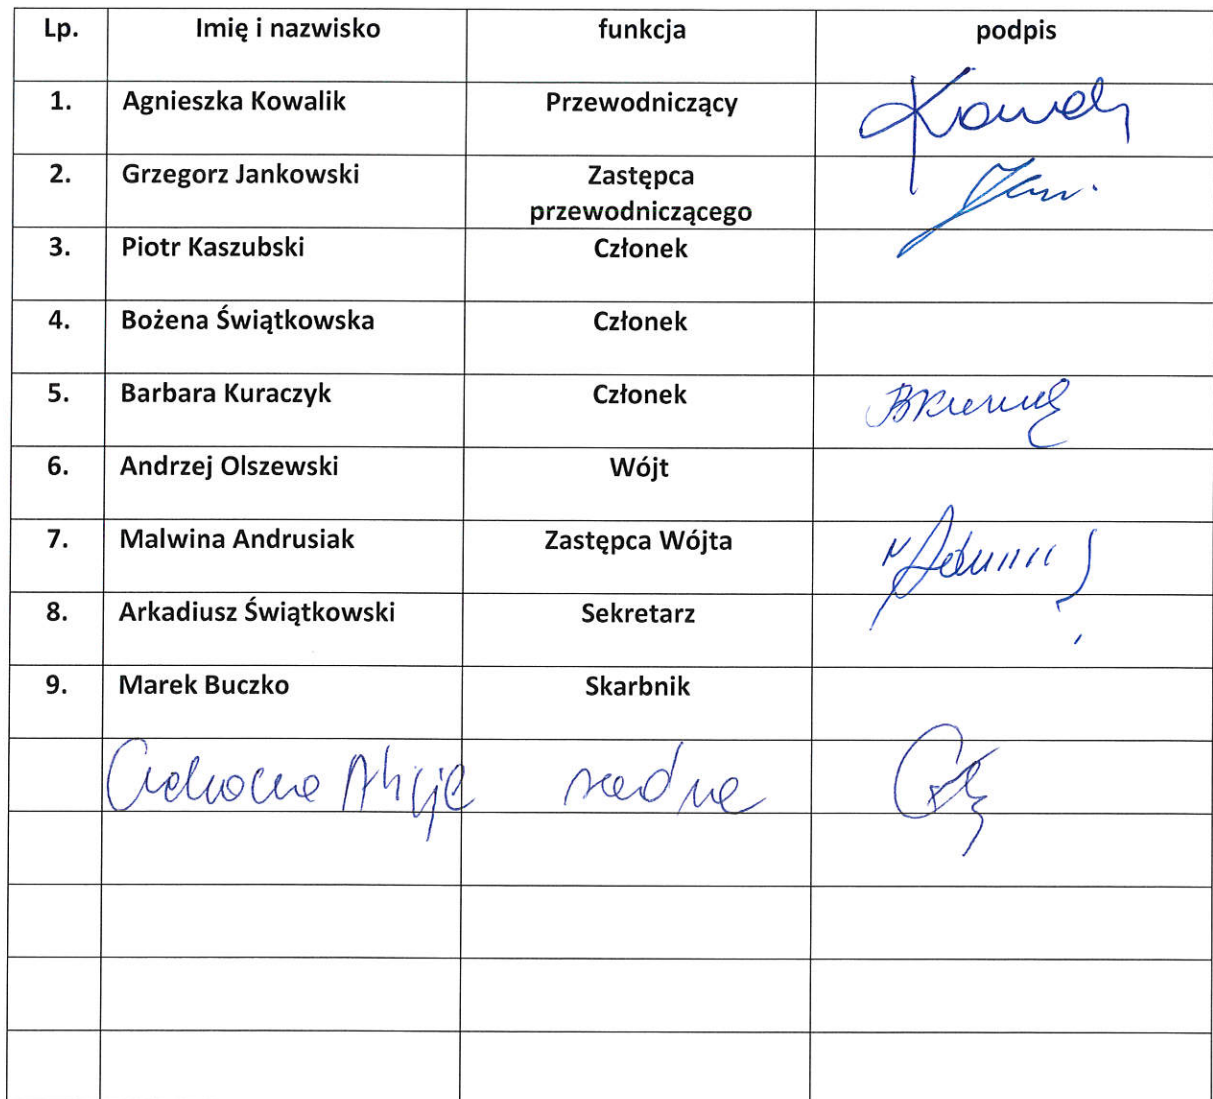 Lp. Imię i nazwisko funkcja podpis
1. Agnieszka Kowalik Przewodniczący
2. Grzegorz Jankowski Zastępca
przewodniczącego
3. Piotr Kaszubski Członek
4. Bożena Świątkowska Członek
5. Barbara Kuraczyk Członek
6. Andrzej Olszewski Wójt
7. Malwina Andrusiak Zastępca Wójta
8. Arkadiusz Świątkowski Sekretarz
9. Marek Buczko Skarbnik
Alicja radna